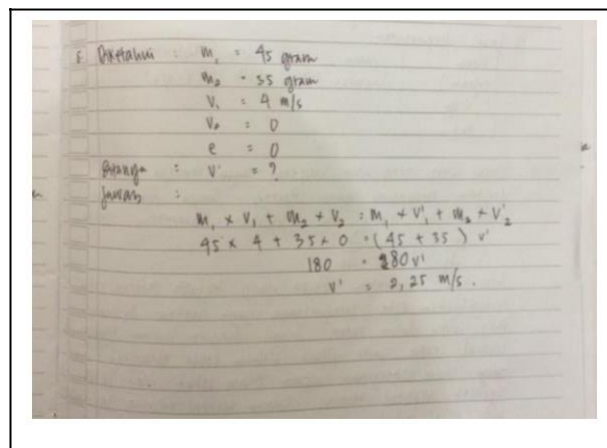 8. Diketahui : m₁ = 45 gram
m₂ = 35 gram
v₁ = 4 m/s
v₂ = 0
e = 0
Ditanya : v' = ?
Jawab :
m₁ × v₁ + m₂ × v₂ = m₁ × v'₁ + m₂ × v'₂
45 × 4 + 35 × 0 = (45 + 35) v'
180 = 80 v'
v' = 2,25 m/s.